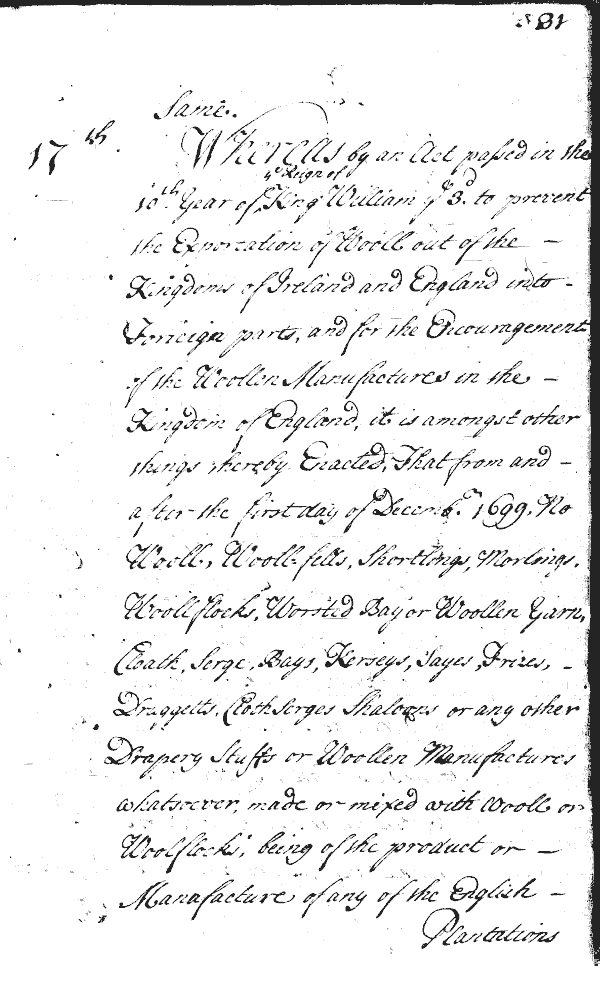 81
Same.
17th. Whereas by an Act passed in the
ye Reign of
10th Year of King William ye 3d. to prevent
the Exportation of Wooll out of the —
Kingdoms of Ireland and England into -
Forreign parts, and for the Encouragement
of the Woollen Manufactures in the —
Kingdom of England, it is amongst other
things thereby Enacted, That from and —
after the first day of Decemb.r 1699. No
Wooll, Woollfells, Shortlings, Morlings,
Woollflocks, Worsted Bay or Woollen Yarn,
Cloath, Serge, Bays, Kerseys, Sayes, Frizes, -
Druggetts, Cloth Serges Shaloons or any other
Drapery Stuffs or Woollen Manufactures
whatsoever, made or mixed with Wooll or
Woolflocks, being of the product or —
Manufacture of any of the English —
Plantations